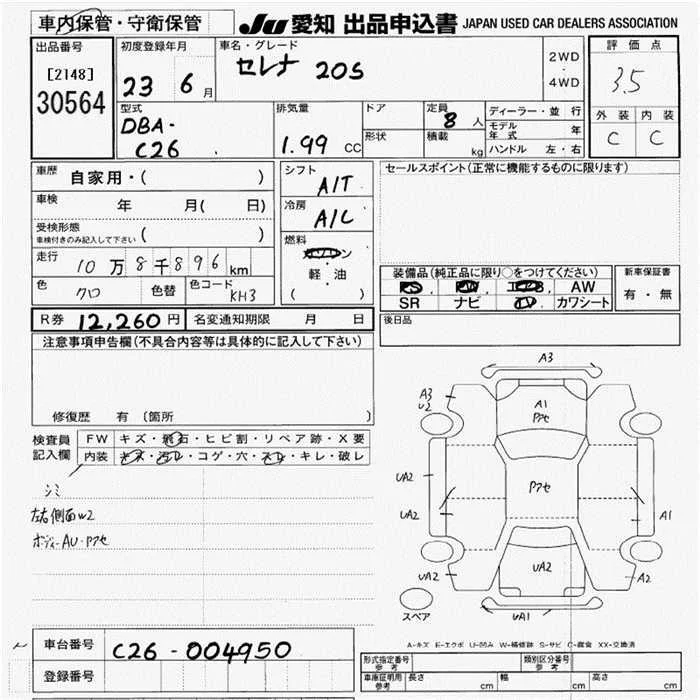 車内保管・守衛保管 JU 愛知 出品申込書 JAPAN USED CAR DEALERS ASSOCIATION
出品番号 初度登録年月 車名・グレード 評価点
[2148] 23 6月 セレナ 20S 2WD・4WD 3.5
30564
型式 排気量 ドア 定員 8人 ディーラー・並行 外装 内装
DBA- モデル年式 年 C C
C26 1.99 CC 形状 積載 kg ハンドル 左・右
車歴 自家用・( ) シフト A/T セールスポイント(正常に機能するものに限ります)
車検 年 月( 日) 冷房 A/C
受検形態 ( )
車検付きのみ記入して下さい
燃料
走行 10万8千896km 軽・油
( )
装備品(純正品に限り○をつけてください) 新車保証書
色 クロ 色替 色コード KH3
PS PW AW 有・無
SR ナビ TV カワシート
R券 12,260円 名変通知期限 月 日 後日品
注意事項申告欄(不具合内容等は具体的に記入して下さい)
修復歴 有 〔箇所 〕
検査員 FW キズ・飛石・ヒビ割・リペア跡・X要
記入欄 内装 キズ・汚レ・コゲ・穴・スレ・キレ・破レ
シミ
左右側面W2
ボディーAU・アクセ
A3
A3
U2
A1
アクセ
UA2
アクセ
UA2
A1
UA2
UA2
A2
UA1
スペア
A-キズ E-エクボ U-凹み W-補修跡 S-サビ C-腐食 XX-交換済
車台番号 C26-004950
登録番号
形式指定番号 参考 類別区分番号 参考
車庫証明用 参考 長さ cm 幅 cm 高さ cm